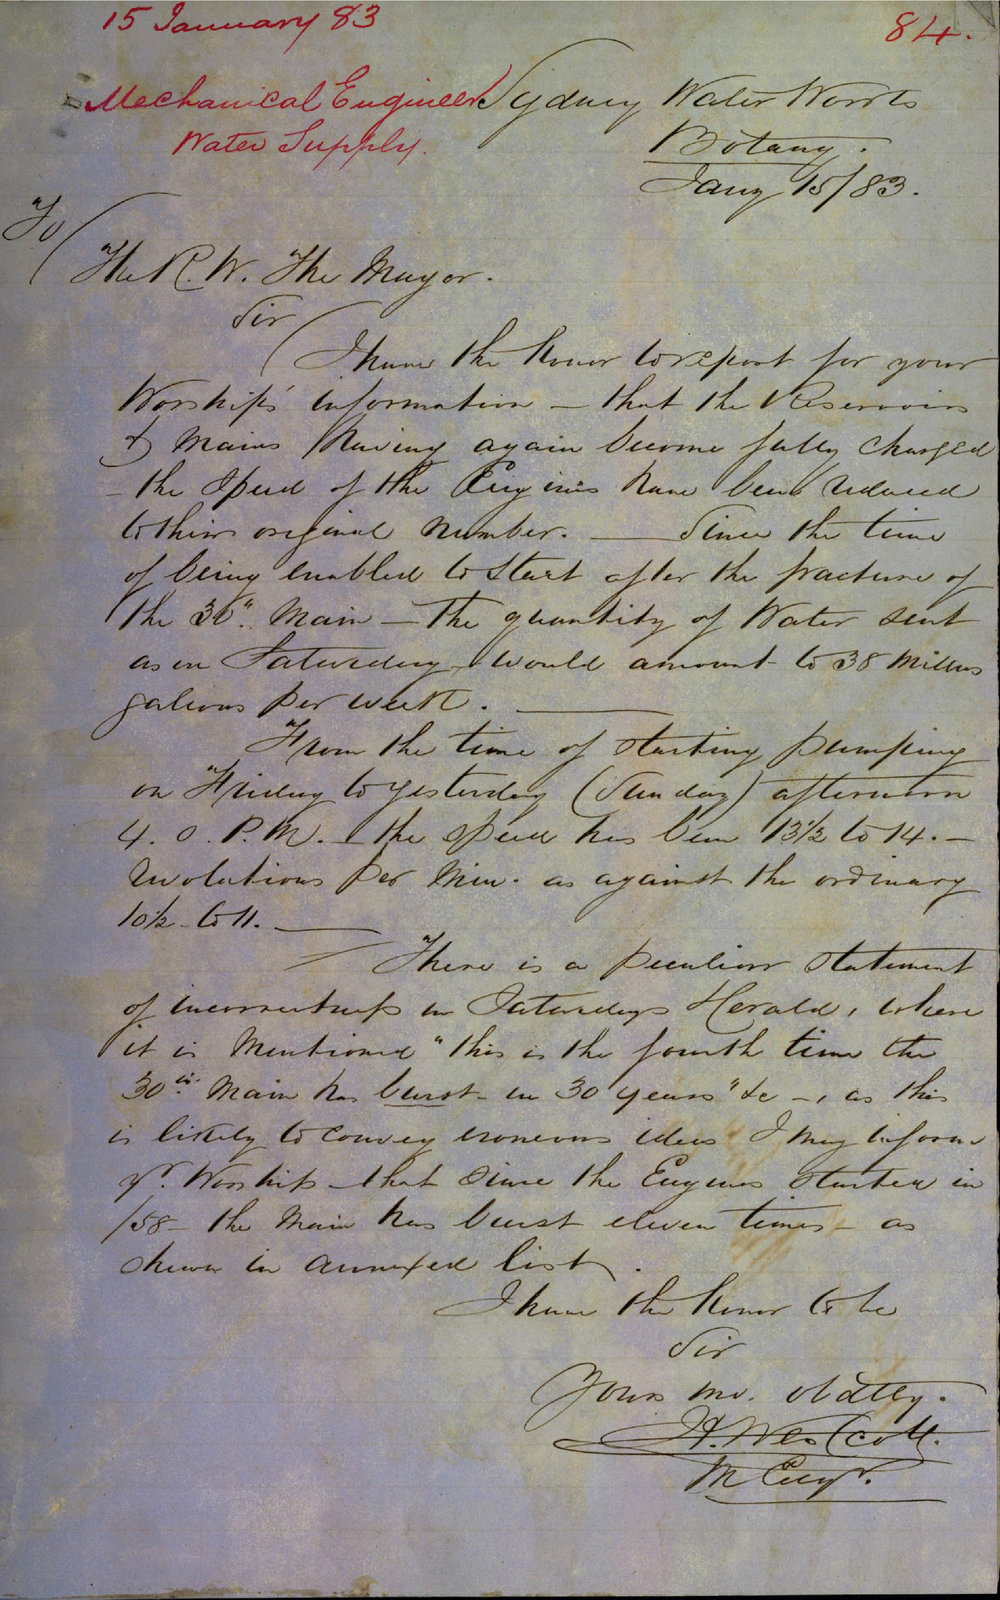 15 January 83
84.
Mechanical Engineer
Water Supply.
Sydney Water Works
Botany.
Jany 15/83.
To
The R. W. The Mayor.
Sir
I have the honor to report for your
Worship's information — that the Reservoirs
& Mains having again become fully charged
– the Speed of the Engines have been reduced
to their original number. — Since the time
of being enabled to start after the fracture of
the 30" Main — the quantity of Water sent
as on Saturday would amount to 38 Millns
gallons per week. —
From the time of starting pumping
on Friday to yesterday (Sunday) afternoon
4. 0. P.M. – the speed has been 13½ to 14. –
Revolutions per Min. as against the ordinary
10½ to 11. —
There is a peculiar statement
of incorrectness in Saturdays Herald, where
it is Mentioned "this is the fourth time the
30 in. Main has burst in 30 years" &c –, as this
is likely to convey erroneous ideas I may inform
yr. Worship – that since the Engines started in
/58 – the Main has burst eleven times – as
shewn in annexed list.
I have the honor to be
Sir
Yours mo. obdtly.
H. Westcott.
M Engr.